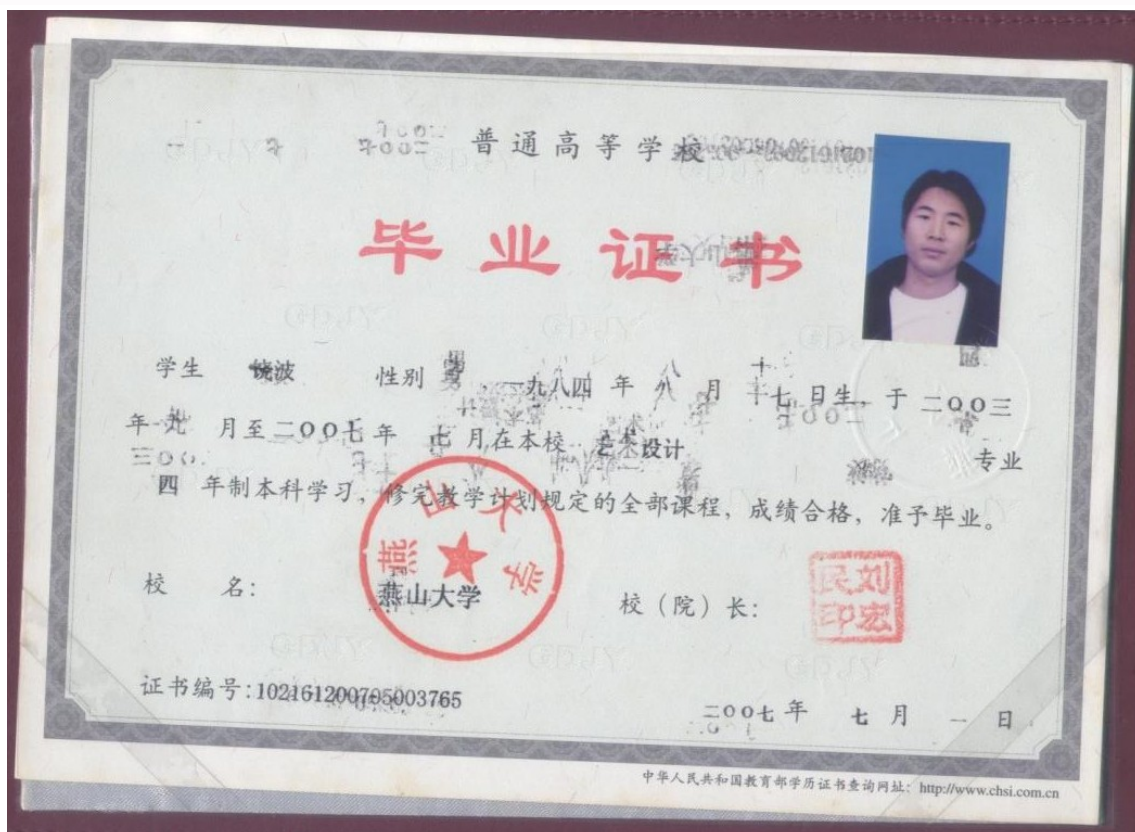 普通高等学校
毕业证书
学生 饶波 性别 男，一九八四年 八 月 十七日生，于二〇〇三
年 九 月至二〇〇七年 七 月在本校 艺术设计 专业
四 年制本科学习，修完教学计划规定的全部课程，成绩合格，准予毕业。
燕山大学
校 名：燕山大学 校（院）长：
刘宏民印
证书编号：102161200705003765
二〇〇七年 七 月 一 日
中华人民共和国教育部学历证书查询网址：http://www.chsi.com.cn